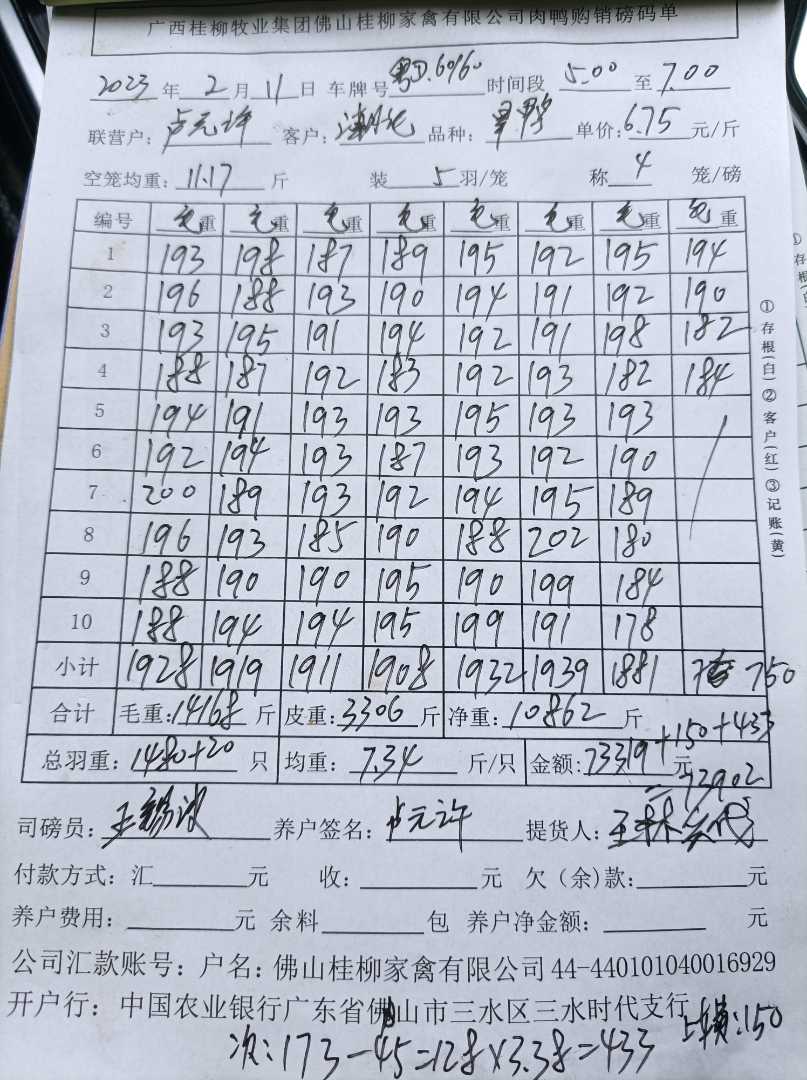 广西桂柳牧业集团佛山桂柳家禽有限公司肉鸭购销磅码单
2023年2月11日 车牌号粤D.60160 时间段5.00至7.00
联营户：卢元许 客户： 品种： 单价：6.75元/斤
空笼均重：11.17斤 装5羽/笼 称4笼/磅
编号 毛重 毛重 毛重 毛重 毛重 毛重 毛重 毛重
1 193 198 187 189 195 192 195 194
2 196 188 193 190 194 191 192 190
3 193 195 191 194 192 191 198 182
4 188 187 192 183 192 193 182 184
5 194 191 193 193 195 193 193
6 192 194 193 187 193 192 190
7 200 189 193 192 194 195 189
8 196 193 185 190 188 202 180
9 188 190 190 195 190 199 184
10 188 194 194 195 199 191 178
小计 1928 1919 1911 1908 1932 1939 1881 750
合计 毛重：14168斤 皮重：3306斤 净重：10862斤
总羽重：1480+20只 均重：7.34斤/只 金额：73319元+150+433
=73902
司磅员： 养户签名：卢元许 提货人：
付款方式：汇元 收：元 欠（余）款：元
养户费用：元 余料包 养户净金额：元
公司汇款账号：户名：佛山桂柳家禽有限公司 44-440101040016929
开户行：中国农业银行广东省佛山市三水区三水时代支行
:150
次：173-45=128×3.38=433
①存根(白)②客户(红)③记账(黄)